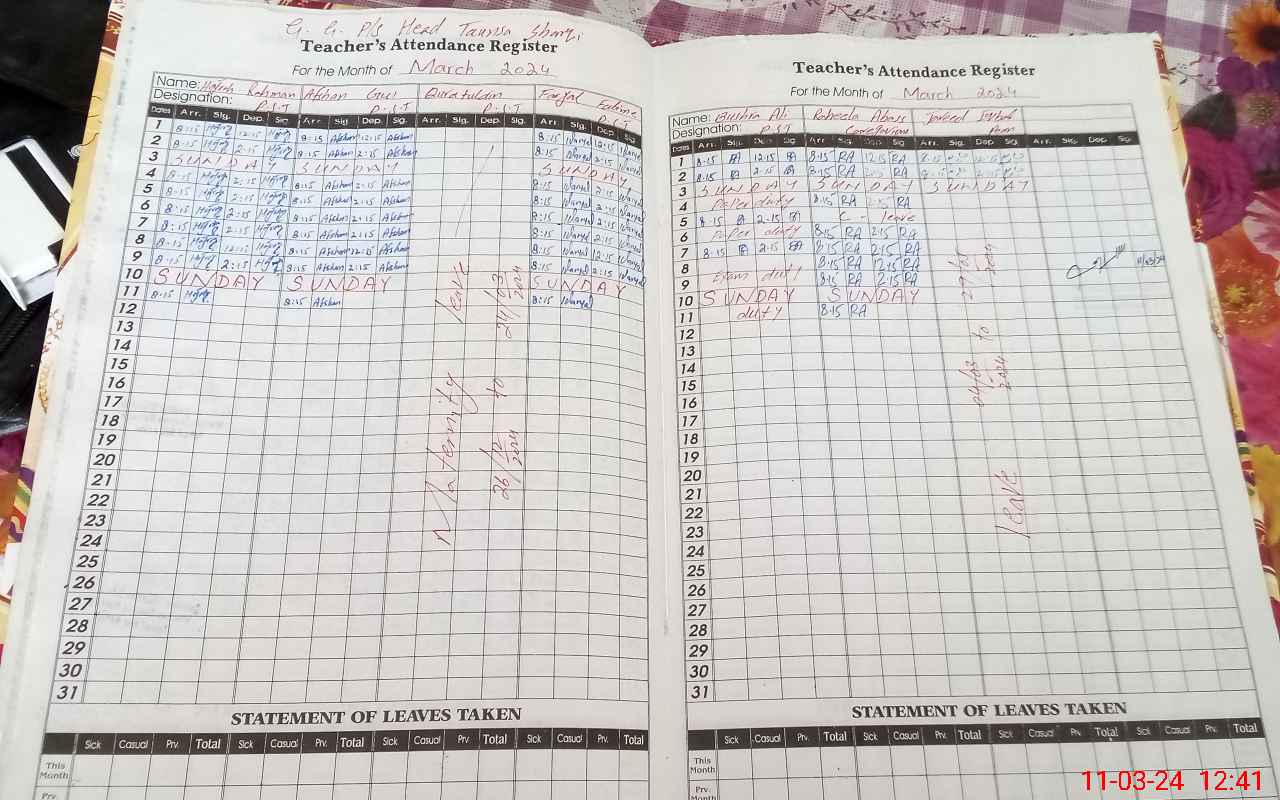 G. G. P/s Head Taunsa Sharqi
Teacher's Attendance Register
For the Month of March 2024
Name: Rahman Afshan Gul Quratulain Fatima
Designation: P.S.T P.S.T P.S.T P.S.T
Dates Arr. Sig. Dep. Sig. Arr. Sig. Dep. Sig. Arr. Sig. Dep. Sig. Arr. Sig. Dep. Sig
1 8:15 12:15 8:15 Afshan 12:15 Afshan 8:15 12:15
2 8:15 2:15 8:15 Afshan 2:15 Afshan 8:15 2:15
3 SUNDAY SUNDAY SUNDAY
4 8:15 2:15 8:15 Afshan 2:15 Afshan 8:15 2:15
5 8:15 2:15 8:15 Afshan 2:15 Afshan 8:15 2:15
6 8:15 2:15 8:15 Afshan 2:15 Afshan 8:15 2:15
7 8:15 2:15 8:15 Afshan 2:15 Afshan 8:15 2:15
8 8:15 12:15 8:15 Afshan 12:15 Afshan 8:15 12:15
9 8:15 2:15 8:15 Afshan 2:15 Afshan 8:15 2:15
10 SUNDAY SUNDAY SUNDAY
11 8:15 8:15 Afshan 8:15
12
13
14
15
16
17
18
19
20
21
22
23
24
25
26
27
28
29
30
31
Maternity leave
26/12 2024 to 24/03 2024
STATEMENT OF LEAVES TAKEN
Sick Casual Prv. Total Sick Casual Prv. Total Sick Casual Prv. Total Sick Casual Prv. Total
This Month
Prv.
Teacher's Attendance Register
For the Month of March 2024
Name: Bushra Ali Raheela Abass Javeed
Designation: P.S.T
Dates Arr. Sig. Dep. Sig Arr Sig Dep Sig Arr. Sig. Dep Sig Arr. Sig. Dep. Sig.
1 8:15 12:15 8:15 RA 12:15 RA 8:15
2 8:15 2:15 8:15 RA 2:15 RA
3 SUNDAY SUNDAY SUNDAY
4 Paper duty 8:15 RA 2:15 RA
5 8:15 2:15 C - leave
6 Paper duty 8:15 RA 2:15 RA
7 8:15 2:15 8:15 RA 2:15 RA
8 8:15 RA 12:15 RA 11/03/24
9 Exam duty 8:15 RA 2:15 RA
10 SUNDAY SUNDAY
11 duty 8:15 RA
12
13
14
15
16
17
18
19
20
21
22
23
24
25
26
27
28
29
30
31
leave 04/03 2024 to 27/03 2024
STATEMENT OF LEAVES TAKEN
Sick Casual Prv. Total Sick Casual Prv. Total Sick Casual Prv. Total Sick Casual Prv. Total
This Month
Prv. Month
11-03-24 12:41